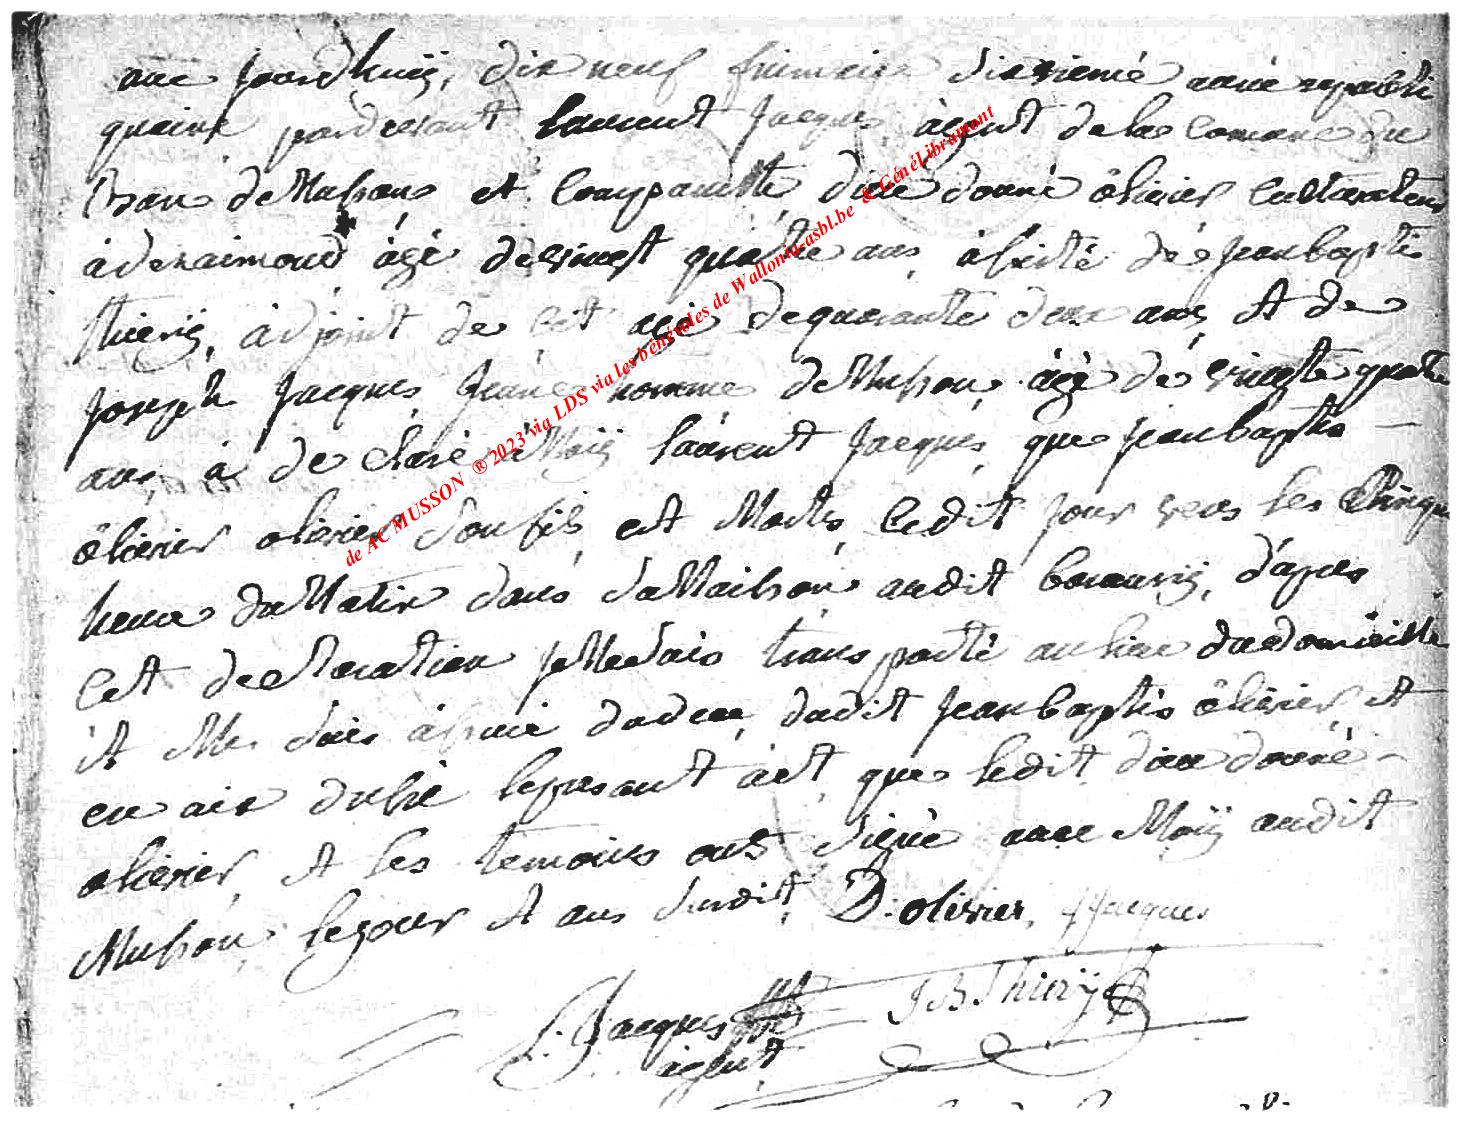 aue jourdhuÿ, dix neuf frimaire sixiemé anné republi
quaine pardevant laurent Jacques agent de la comune du
ban de Musson et comparut dieu donné ôlivier cultivateur
à agé de vingt quatre ans, assisté de Jean baptiste
thierÿ, adjoint de agé de quarante deux ans et de
joseph Jacques Jeune homme de Musson, agé dé vingtt quatre
ans, a declaré à Moÿ laurent Jacques, que jean baptis
ôlivier olivier son fils est Morts ledit jour vers les Cinque
heure du Matin dans sa Maison audit baranzÿ, d'apres
cet declaration je Me suis transporté au lieu du domicille
et Me suis assuré du deces dudit jean baptis ôlivier, et
en aix dressé le present act que ledit dieu donné
olivier et les temoins ont signé avec Moÿ audit
Musson, le jour et ans susdit, D. olivier, JJacques
L. Jacques JBThierÿ
agent
de AC MUSSON ® 2023 via LDS via les bénévoles de Wallonia-asbl.be & GénéLibramont